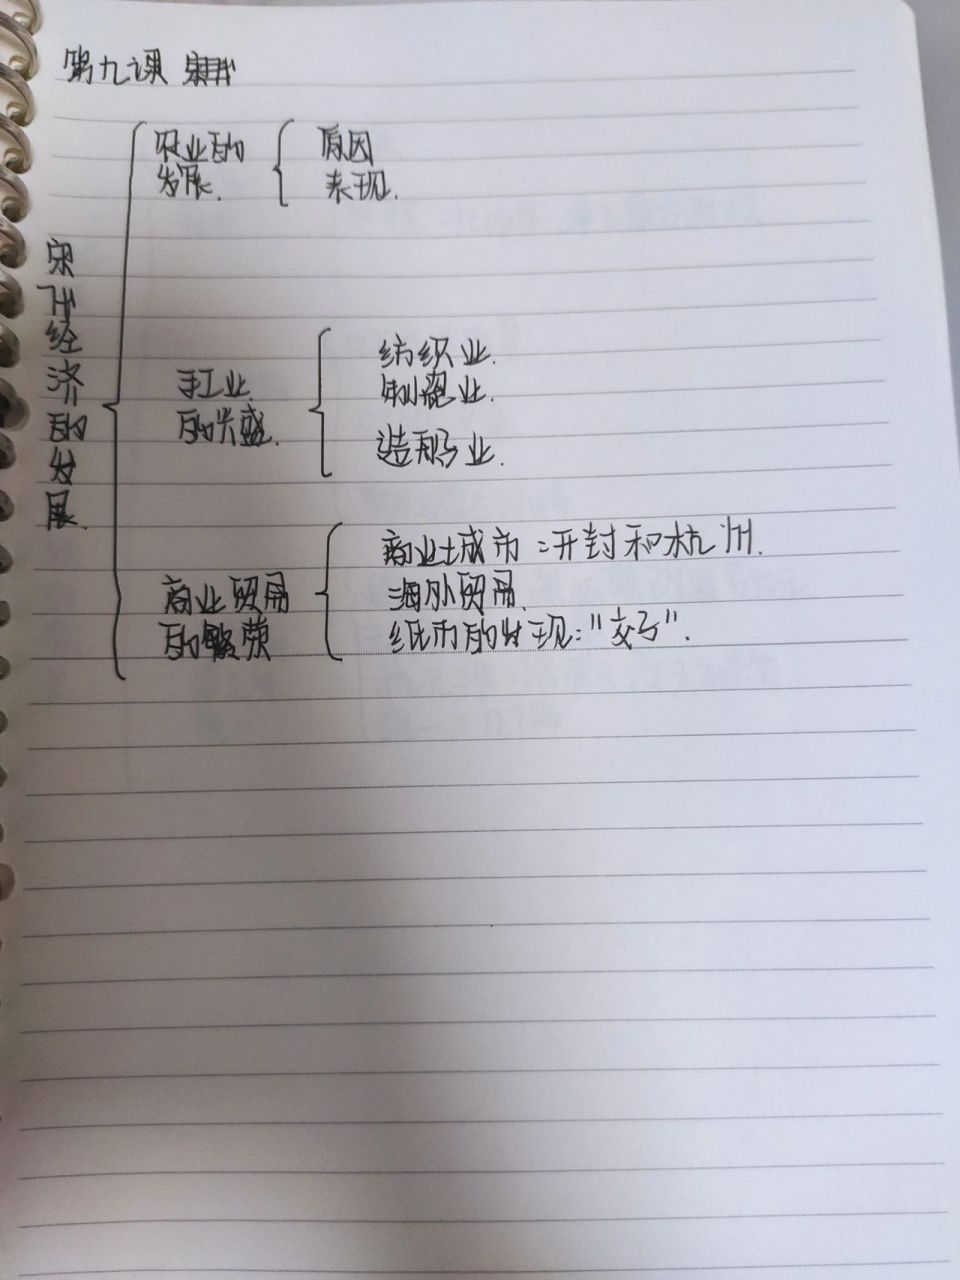 第九课
宋代经济的发展.
农业的
发展.
原因
表现.
手工业
的兴盛.
纺织业.
制瓷业.
造船业.
商业贸易
的繁荣
商业城市:开封和杭州.
海外贸易.
纸币的出现:"交子".